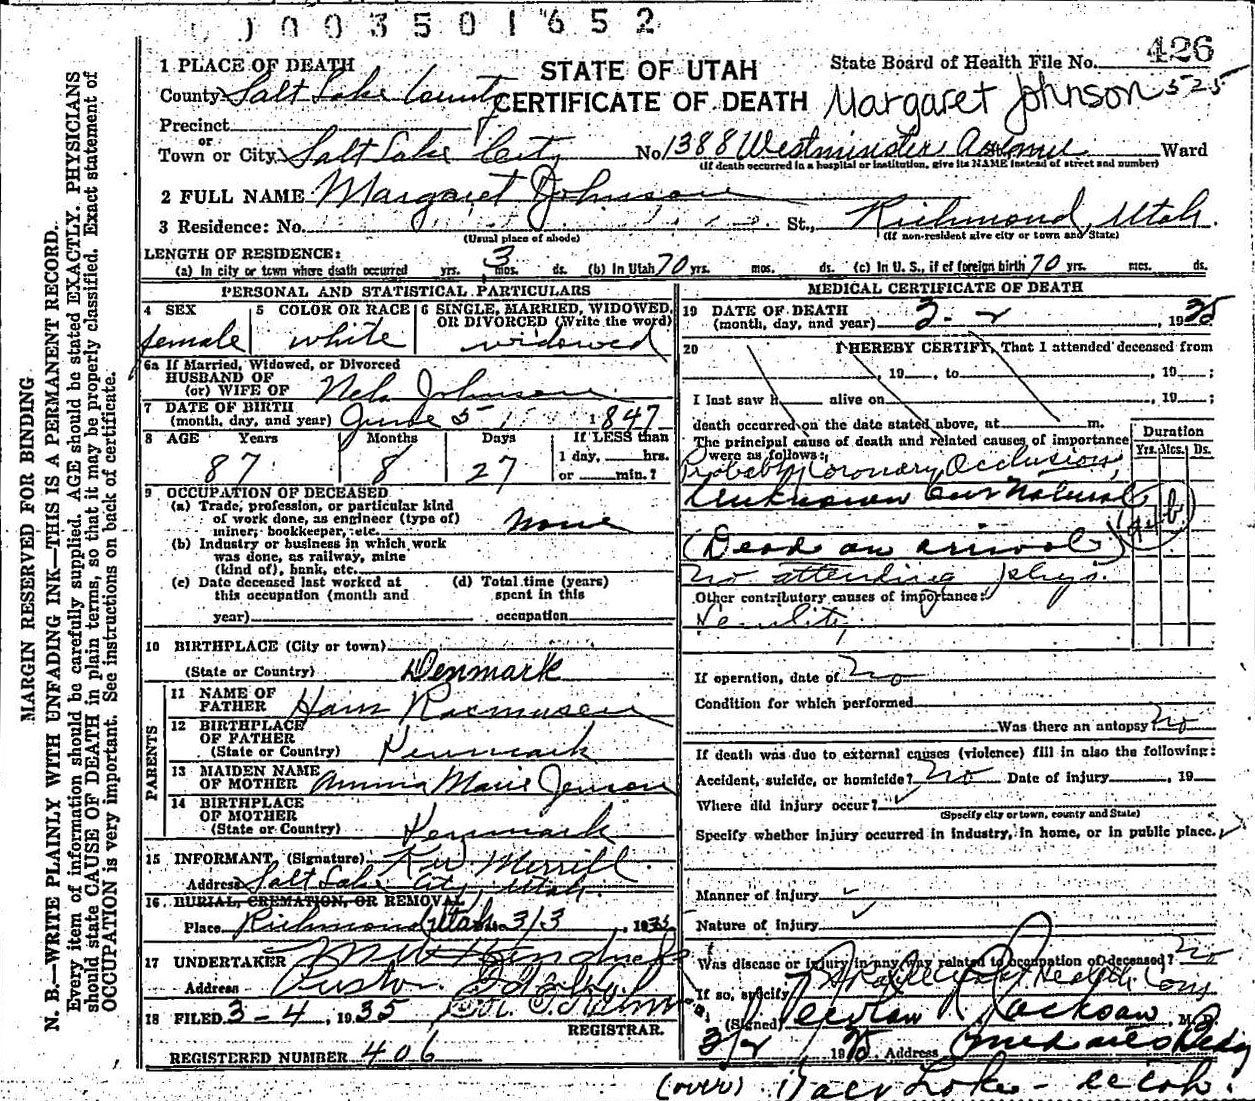 003501652
426
1 PLACE OF DEATH
STATE OF UTAH
State Board of Health File No.
County Salt Lake County
CERTIFICATE OF DEATH
Margaret Johnson 525
Precinct
or
Town or City Salt Lake City No. 1388 Westminster Avenue Ward
(If death occurred in a hospital or institution, give its NAME instead of street and number)
2 FULL NAME Margaret Johnson
3 Residence: No. St., Richmond, Utah.
(Usual place of abode) (If non-resident give city or town and State)
LENGTH OF RESIDENCE:
(a) In city or town where death occurred yrs. 3 mos. ds. (b) In Utah 70 yrs. mos. ds. (c) In U. S., if of foreign birth 70 yrs. mos. ds.
PERSONAL AND STATISTICAL PARTICULARS
4 SEX female
5 COLOR OR RACE white
6 SINGLE, MARRIED, WIDOWED, OR DIVORCED (Write the word) widowed
6a If Married, Widowed, or Divorced
HUSBAND OF
(or) WIFE OF Nels Johnson
7 DATE OF BIRTH
(month, day, and year) June 5, 1847
8 AGE Years Months Days If LESS than
1 day, hrs.
or min.?
87 8 27
9 OCCUPATION OF DECEASED
(a) Trade, profession, or particular kind
of work done, as engineer (type of)
miner; bookkeeper, etc. None
(b) Industry or business in which work
was done, as railway, mine
(kind of), bank, etc.
(c) Date deceased last worked at
this occupation (month and
year)
(d) Total time (years)
spent in this
occupation
10 BIRTHPLACE (City or town)
(State or Country) Denmark
PARENTS
11 NAME OF
FATHER Hans Rasmussen
12 BIRTHPLACE
OF FATHER
(State or Country) Denmark
13 MAIDEN NAME
OF MOTHER Anna Marie Jenson
14 BIRTHPLACE
OF MOTHER
(State or Country) Denmark
15 INFORMANT (Signature) Merrill
Address Salt Lake City, Utah.
16 BURIAL, CREMATION, OR REMOVAL
Place Richmond Utah 3/3, 1935
17 UNDERTAKER
Address Preston Idaho
18 FILED 3-4, 1935
REGISTRAR.
REGISTERED NUMBER 406
MEDICAL CERTIFICATE OF DEATH
19 DATE OF DEATH
(month, day, and year) 3-2, 1935
20 I HEREBY CERTIFY, That I attended deceased from
, 19 , to , 19 ;
I last saw h alive on , 19 ;
death occurred on the date stated above, at m.
The principal cause of death and related causes of importance
were as follows:
Duration
Yrs. Mos. Ds.
Probably Coronary Occlusion,
Unknown but Natural
94b
(Dead on arrival)
no attending phys.
Other contributory causes of importance:
Senility,
If operation, date of no
Condition for which performed
Was there an autopsy? no
If death was due to external causes (violence) fill in also the following:
Accident, suicide, or homicide? no Date of injury , 19
Where did injury occur?
(Specify city or town, county and State)
Specify whether injury occurred in industry, in home, or in public place.
Manner of injury
Nature of injury
Was disease or injury in any way related to occupation of deceased? no
If so, specify
(Signed) Jackson, M. D.
3/2 1935 Address
(over)
MARGIN RESERVED FOR BINDING
N. B.—WRITE PLAINLY WITH UNFADING INK—THIS IS A PERMANENT RECORD.
Every item of information should be carefully supplied. AGE should be stated EXACTLY. PHYSICIANS
should state CAUSE OF DEATH in plain terms, so that it may be properly classified. Exact statement of
OCCUPATION is very important. See instructions on back of certificate.